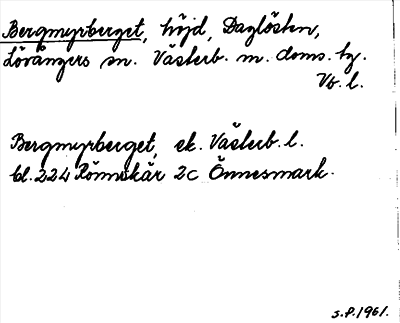 Bergmyrberget, höjd, Daglösten,
Lövångers sn. Västerb. m. doms. tg.
Vb. l.
Bergmyrberget, ek. Västerb. l.
bl. 224 Rönnskär 2c Önnesmark.
S.P. 1961.